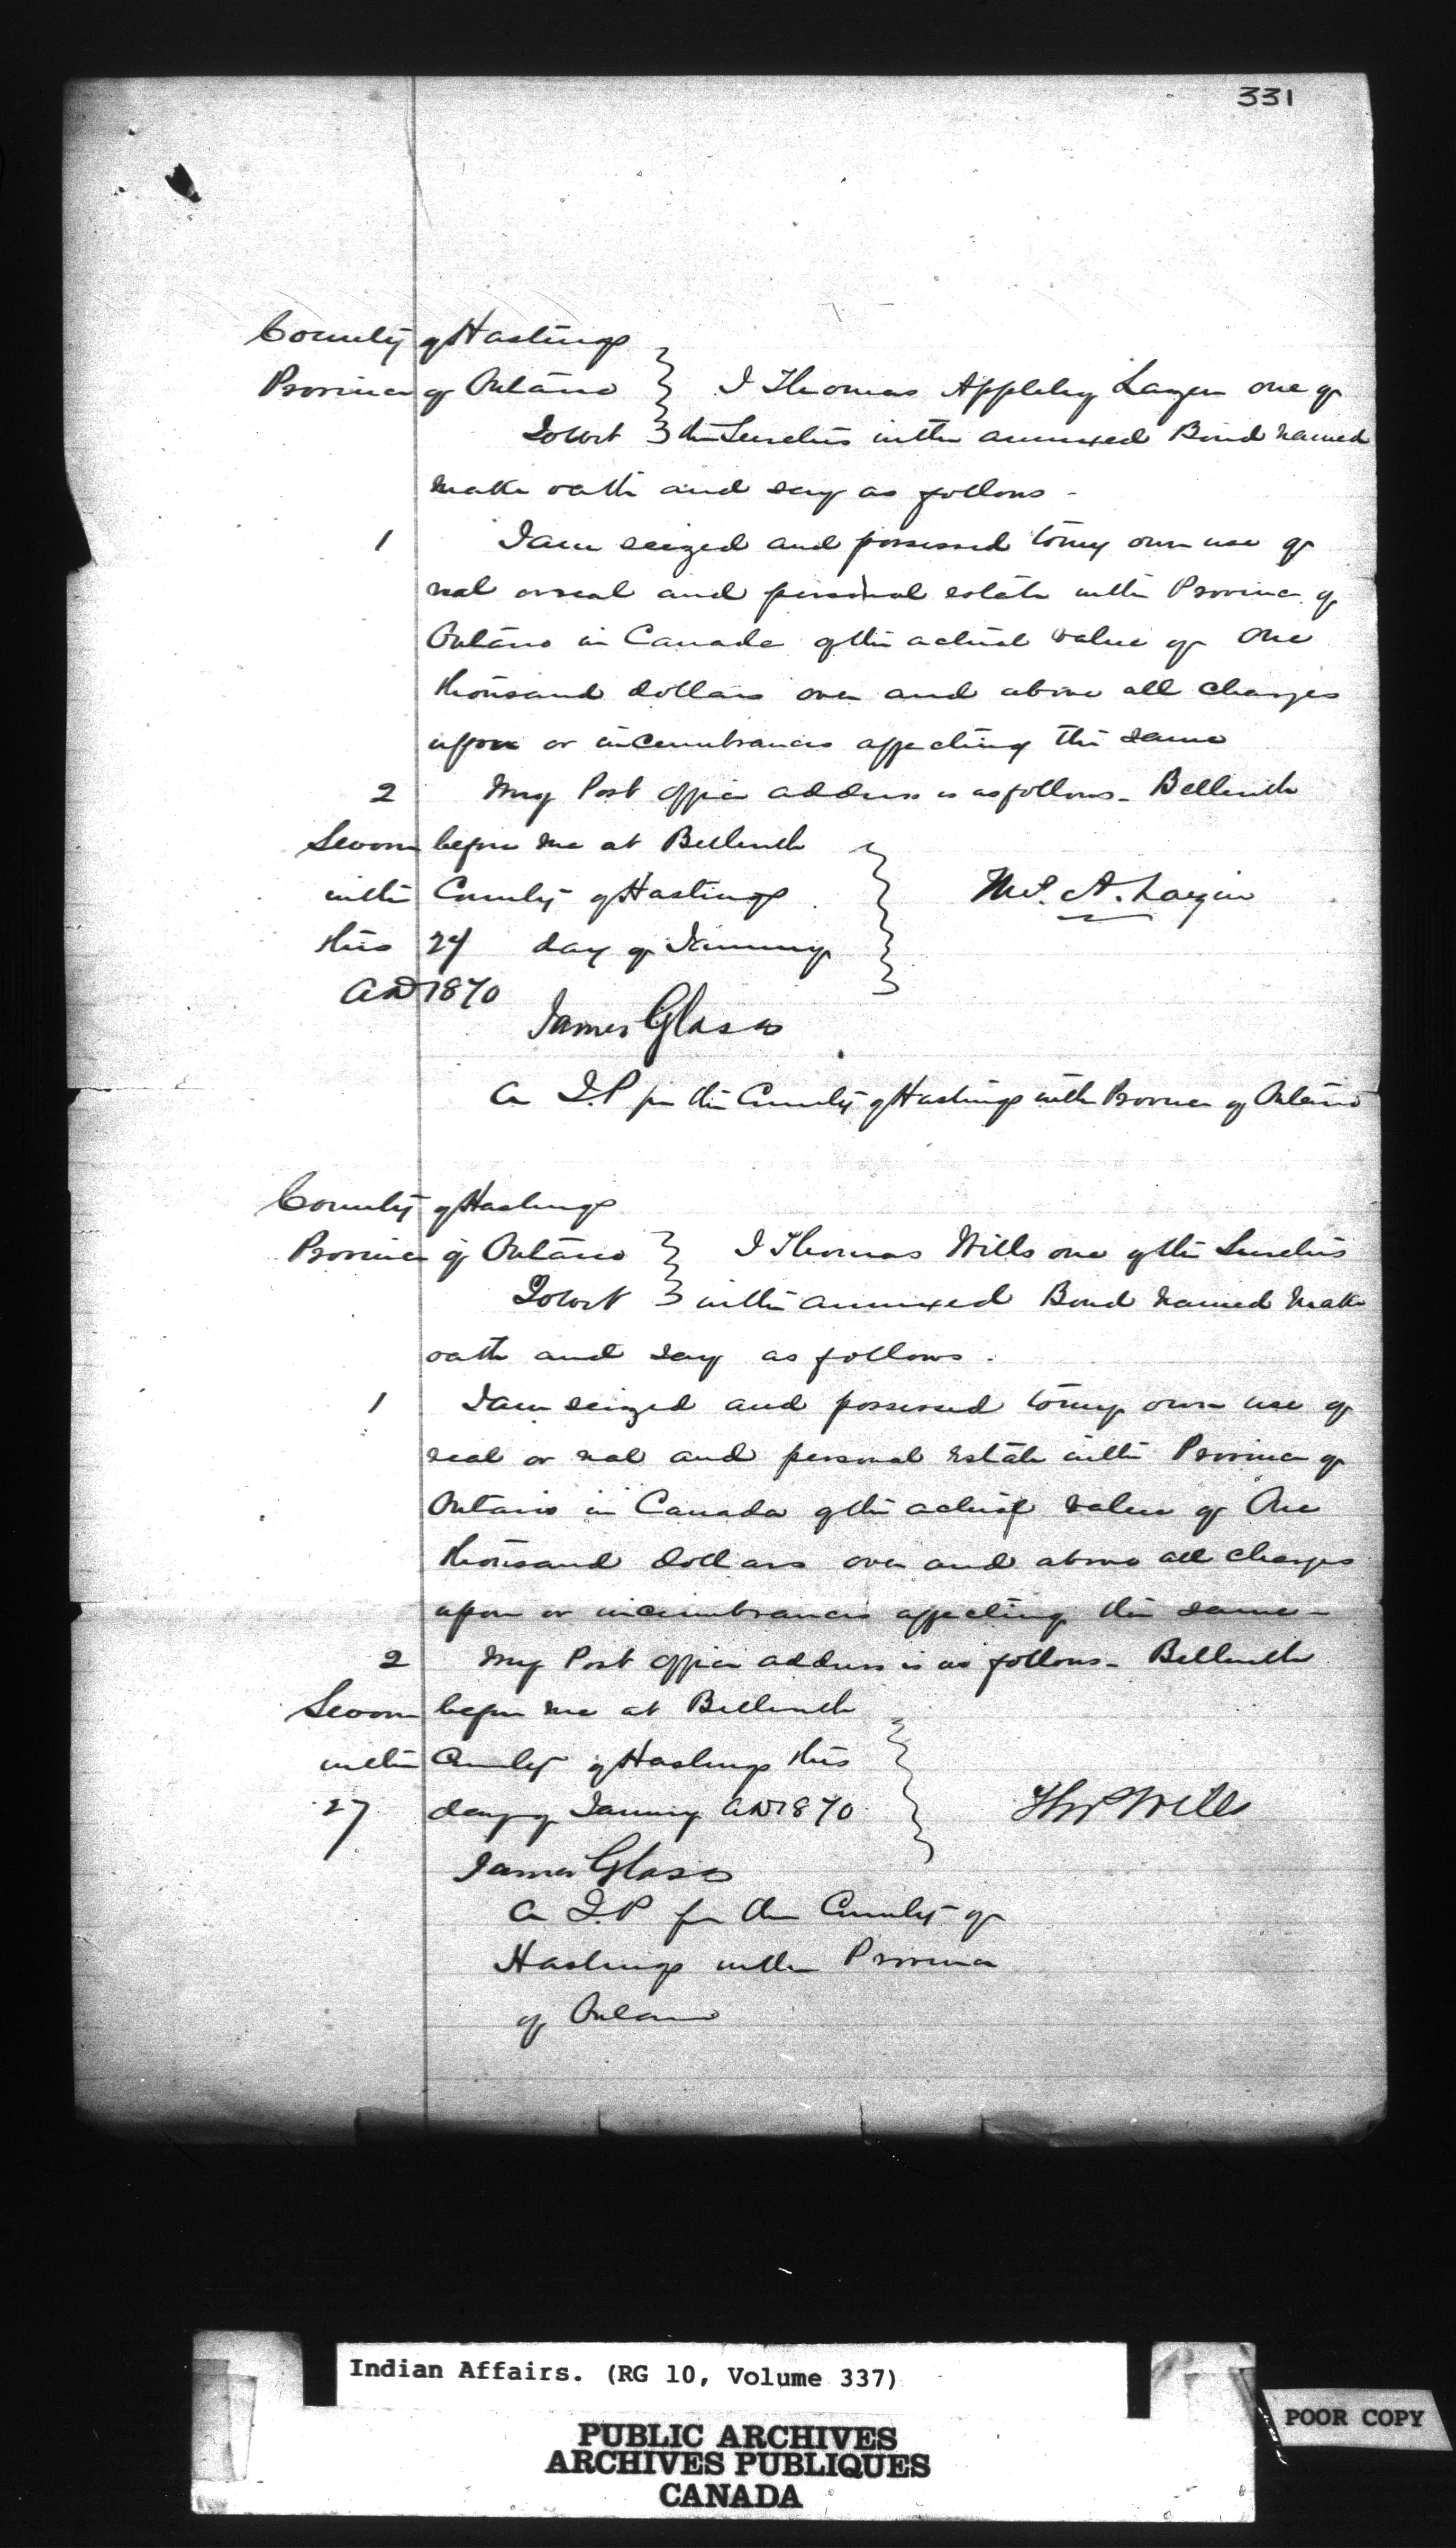 331
County of Hastings
Province of Ontario } I Thomas Appleby Lazier one of
To wit } the Sureties in the annexed Bond named
make oath and say as follows -
1 I am seized and possessed to my own use of
real or real and personal estate in the Province of
Ontario in Canada of the actual value of One
thousand dollars over and above all charges
upon or incumbrances affecting the same
2 My Post Office address is as follows - Belleville
Sworn before me at Belleville
in the County of Hastings
this 27 day of January
AD 1870
A. Lazier
James Glass
a J.P for the County of Hastings in the Province of Ontario
County of Hastings
Province of Ontario } I Thomas Wills one of the Sureties
To wit } in the annexed Bond named make
oath and say as follows.
1 I am seized and possessed to my own use of
real or real and personal estate in the Province of
Ontario in Canada of the actual value of One
thousand dollars over and above all charges
upon or incumbrances affecting the same -
2 My Post Office address is as follows - Belleville
Sworn before me at Belleville
in the County of Hastings this
27 day of January AD 1870
Wills
James Glass
a J.P for the County of
Hastings in the Province
of Ontario
Indian Affairs. (RG 10, Volume 337)
PUBLIC ARCHIVES
ARCHIVES PUBLIQUES
CANADA
POOR COPY